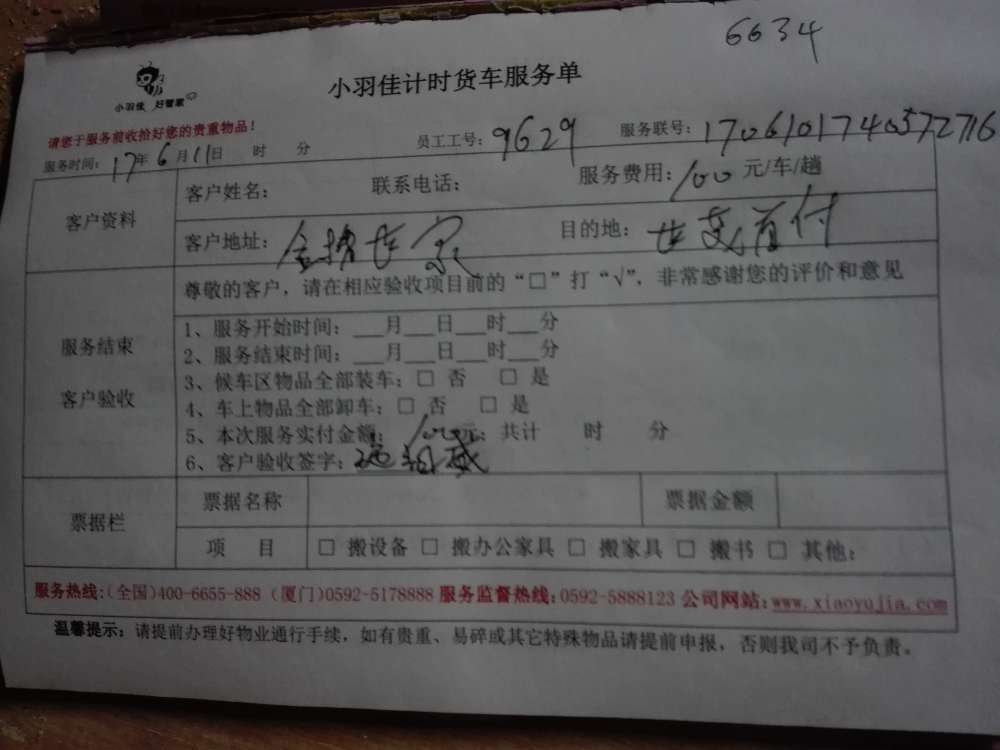 6634
小羽佳 好管家
小羽佳计时货车服务单
请您于服务前收拾好您的贵重物品！
服务时间：17年6月11日 时 分 员工工号：9629 服务联号：1706101740372716
客户资料
客户姓名： 联系电话： 服务费用：100元/车/趟
客户地址： 目的地：
服务结束
客户验收
尊敬的客户，请在相应验收项目前的“□”打“√”，非常感谢您的评价和意见
1、服务开始时间：___月___日___时___分
2、服务结束时间：___月___日___时___分
3、候车区物品全部装车：□ 否 □ 是
4、车上物品全部卸车：□ 否 □ 是
5、本次服务实付金额：100元；共计 时 分
6、客户验收签字：
票据栏
票据名称 票据金额
项 目 □ 搬设备 □ 搬办公家具 □ 搬家具 □ 搬书 □ 其他：
服务热线：(全国)400-6655-888（厦门)0592-5178888 服务监督热线：0592-5888123 公司网站：www.xiaoyujia.com
温馨提示：请提前办理好物业通行手续，如有贵重、易碎或其它特殊物品请提前申报，否则我司不予负责。